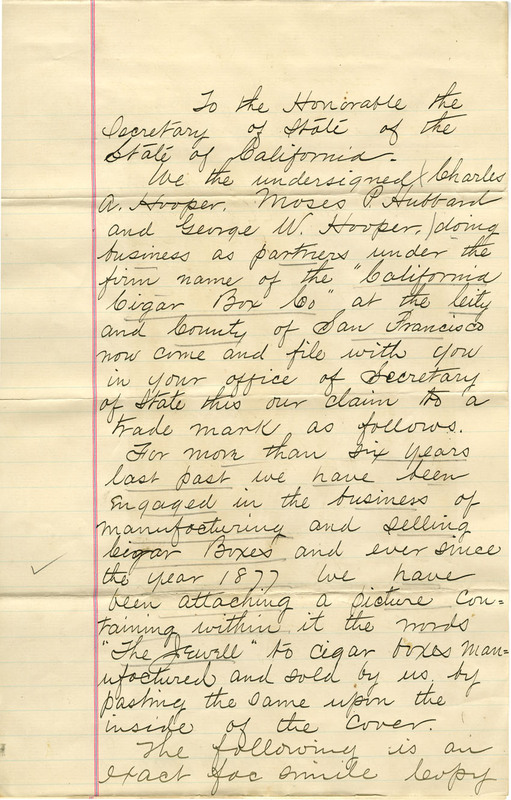 To the Honorable the
Secretary of State of the
State of California.
We the undersigned (Charles
A. Hooper, Moses P. Hubbard
and George W. Hooper,) doing
business as partners under the
firm name of the "California
Cigar Box Co" at the City
and County of San Francisco
now come and file with you
in your office of Secretary
of State this our claim to a
trade mark as follows.
For more than six years
last past we have been
engaged in the business of
manufacturing and selling
Cigar Boxes and ever since
the year 1877 we have
been attaching a picture con=
taining within it the words
"The Jewell" to cigar boxes man=
ufactured and sold by us by
pasting the same upon the
inside of the cover.
The following is an
exact fac simile copy